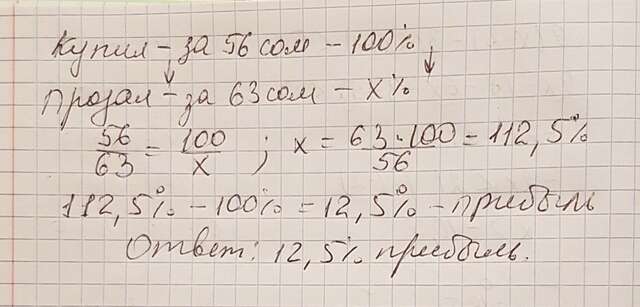 Купил – за 56 сом – 100%
продал – за 63 сом – x%
56/63 = 100/x ; x = 63·100/56 = 112,5%
112,5% – 100% = 12,5% – прибыль
Ответ: 12,5% прибыль.